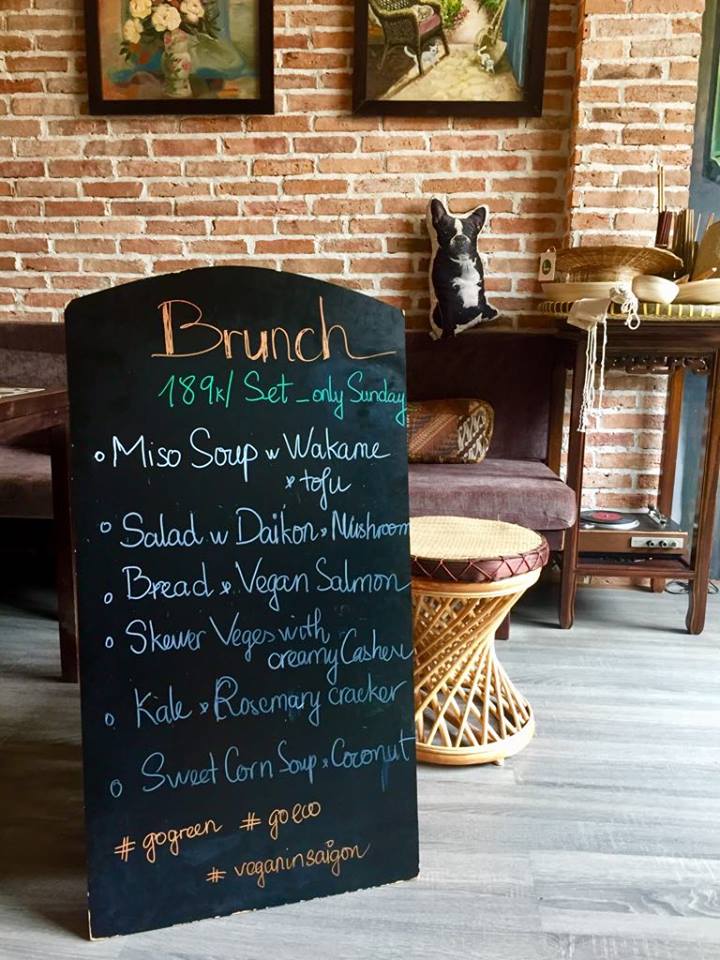 Brunch
189k/ Set - only Sunday
Miso Soup w Wakame
& tofu
Salad w Daikon & Mushroom
Bread & Vegan Salmon
Skewer Veges with
creamy Cashew
Kale & Rosemary cracker
Sweet Corn Soup & Coconut
# gogreen # goeco
# veganinsaigon